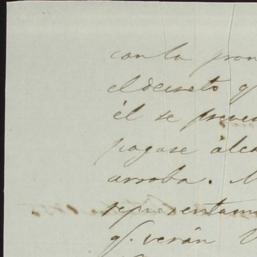 con la pron
el decreto q
él se preven
pagase álca
arroba. 
representam
qe. verán V